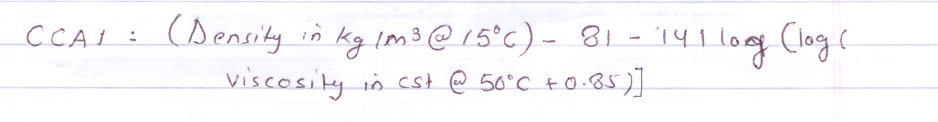 CCAI : (Density in kg/m3 @ 15°C) - 81 - 141 log (log (
viscosity in cst @ 50°C + 0.85)]